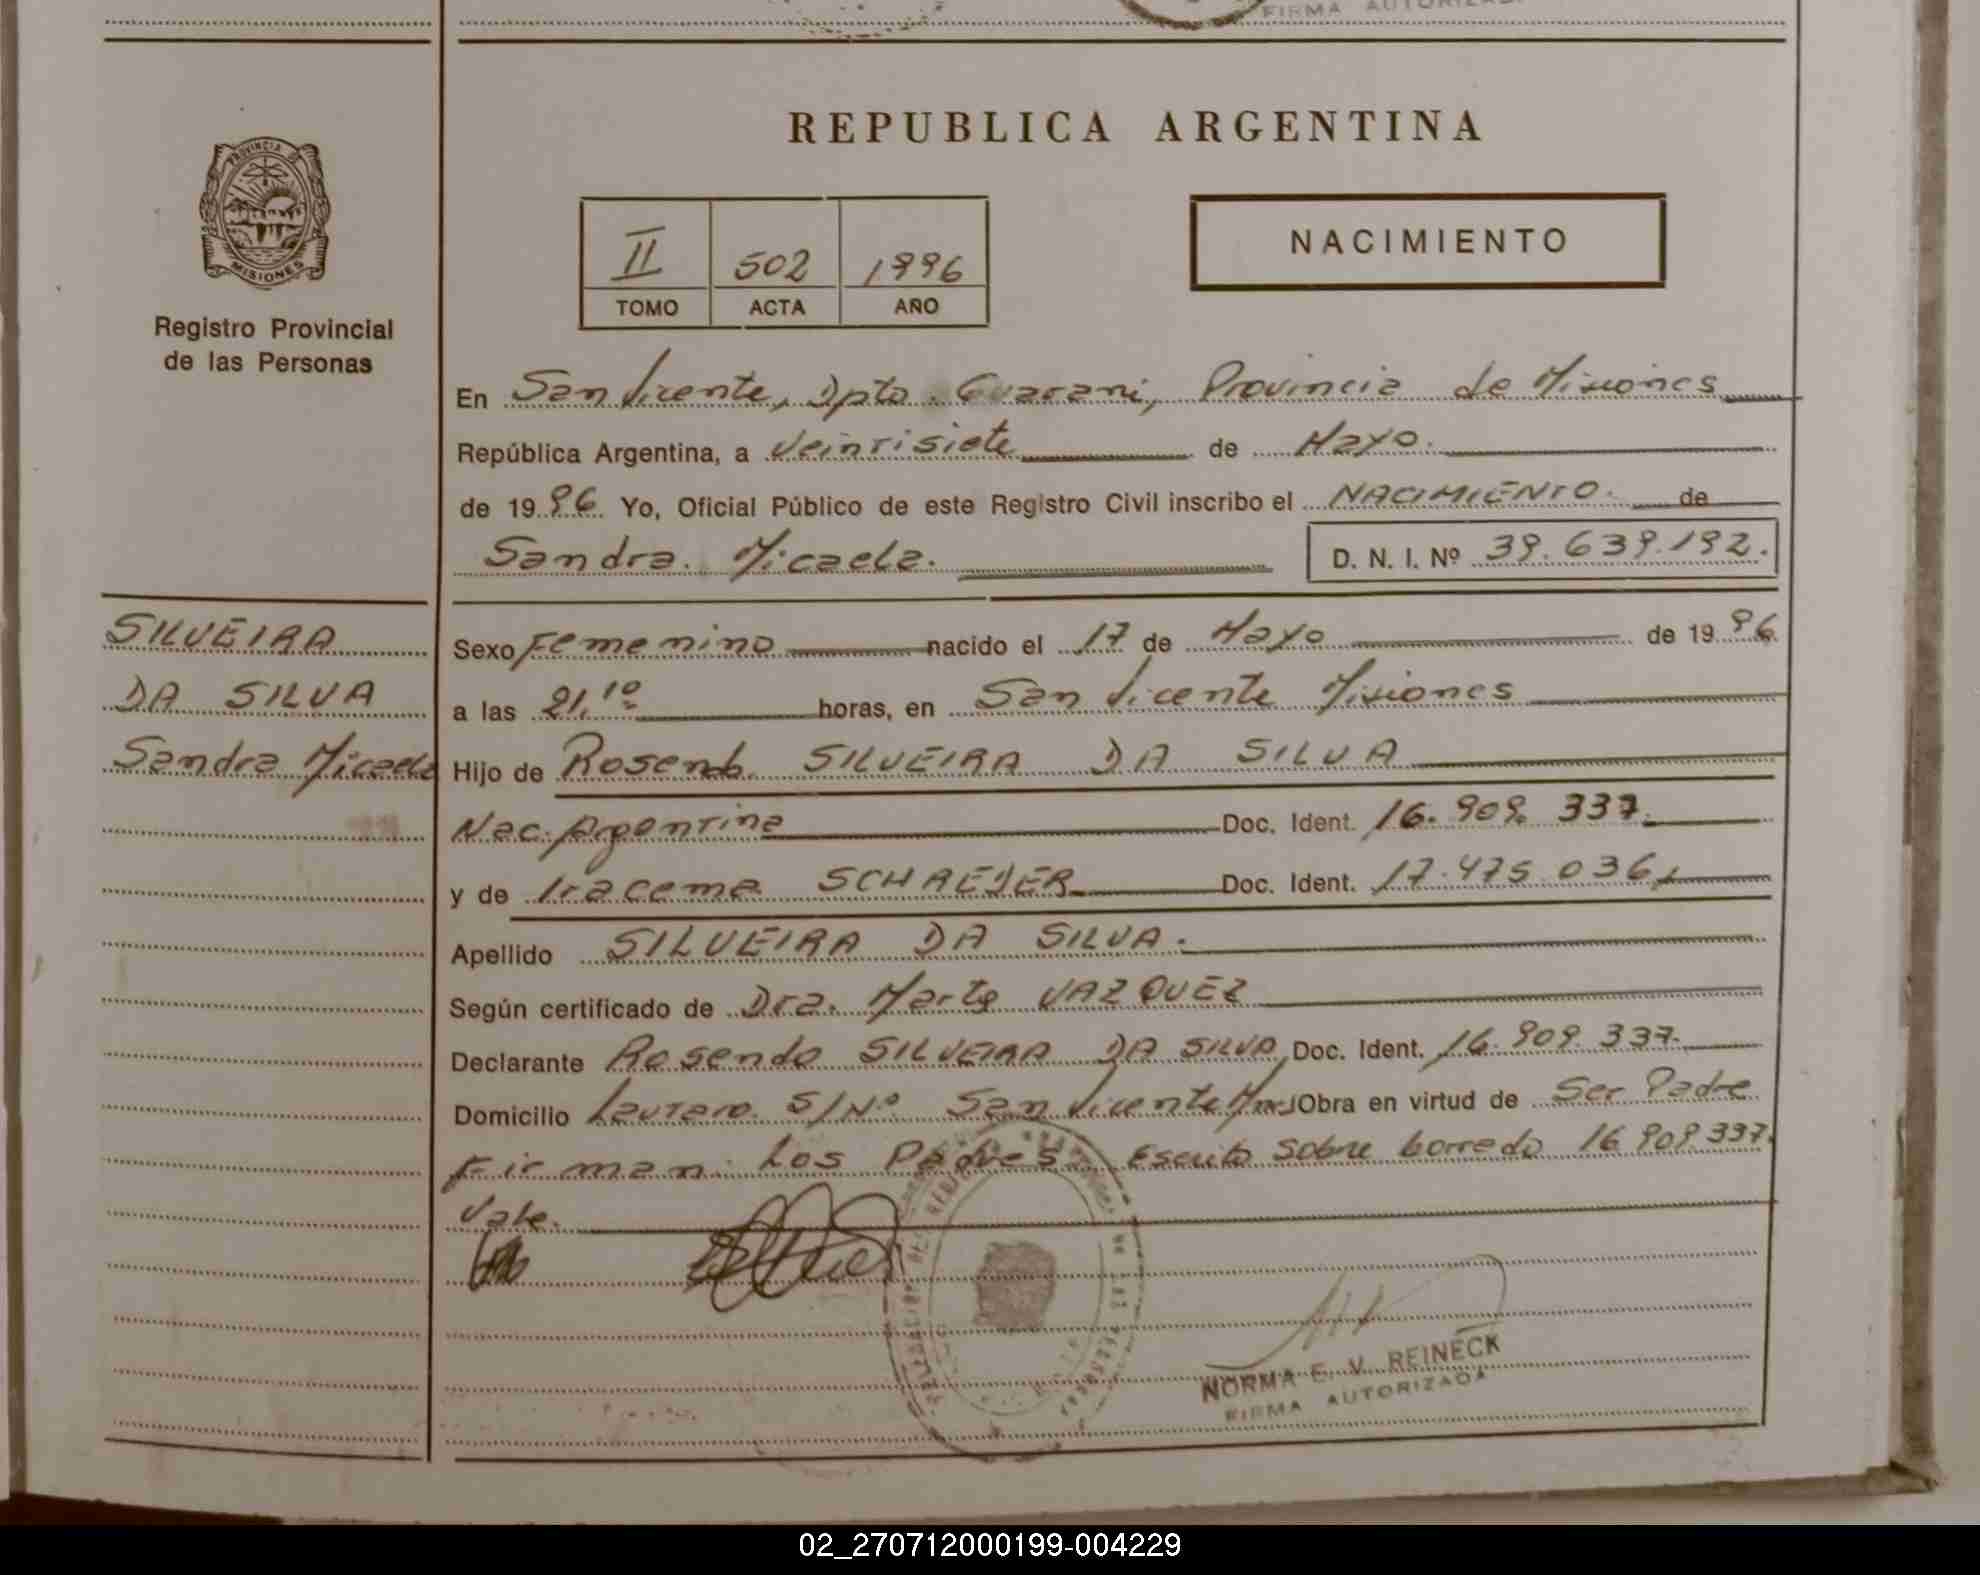 FIRMA AUTORIZADA
REPUBLICA ARGENTINA
PROVINCIA DE
MISIONES
Registro Provincial
de las Personas
II 502 1996
TOMO ACTA AÑO
NACIMIENTO
En San Vicente, Dpto. Guarani, Provincia de Misiones
República Argentina, a Veintisiete de Mayo.
de 1996 Yo, Oficial Público de este Registro Civil inscribo el NACIMIENTO. de
Sandra. Micaela. D. N. I. Nº 39.639.192.
SILVEIRA
DA SILVA
Sandra Micaela
Sexo Femenino nacido el 17 de Mayo de 1996
a las 21,10 horas, en San Vicente Misiones
Hijo de Rosendo SILVEIRA DA SILVA
Nac. Argentina Doc. Ident. 16.909.337.
y de Iracema SCHAEFER Doc. Ident. 17.475.036,
Apellido SILVEIRA DA SILVA.
Según certificado de Dra. Marta VAZQUEZ
Declarante Rosendo SILVEIRA DA SILVA Doc. Ident. 16.909.337.
Domicilio Lautaro S/Nº San Vicente Mnes Obra en virtud de Ser Padre
Firman: Los Padres. Escrito sobre borrado 16.909.337.
Vale.
NORMA E. V. REINECK
FIRMA AUTORIZADA
02_270712000199-004229